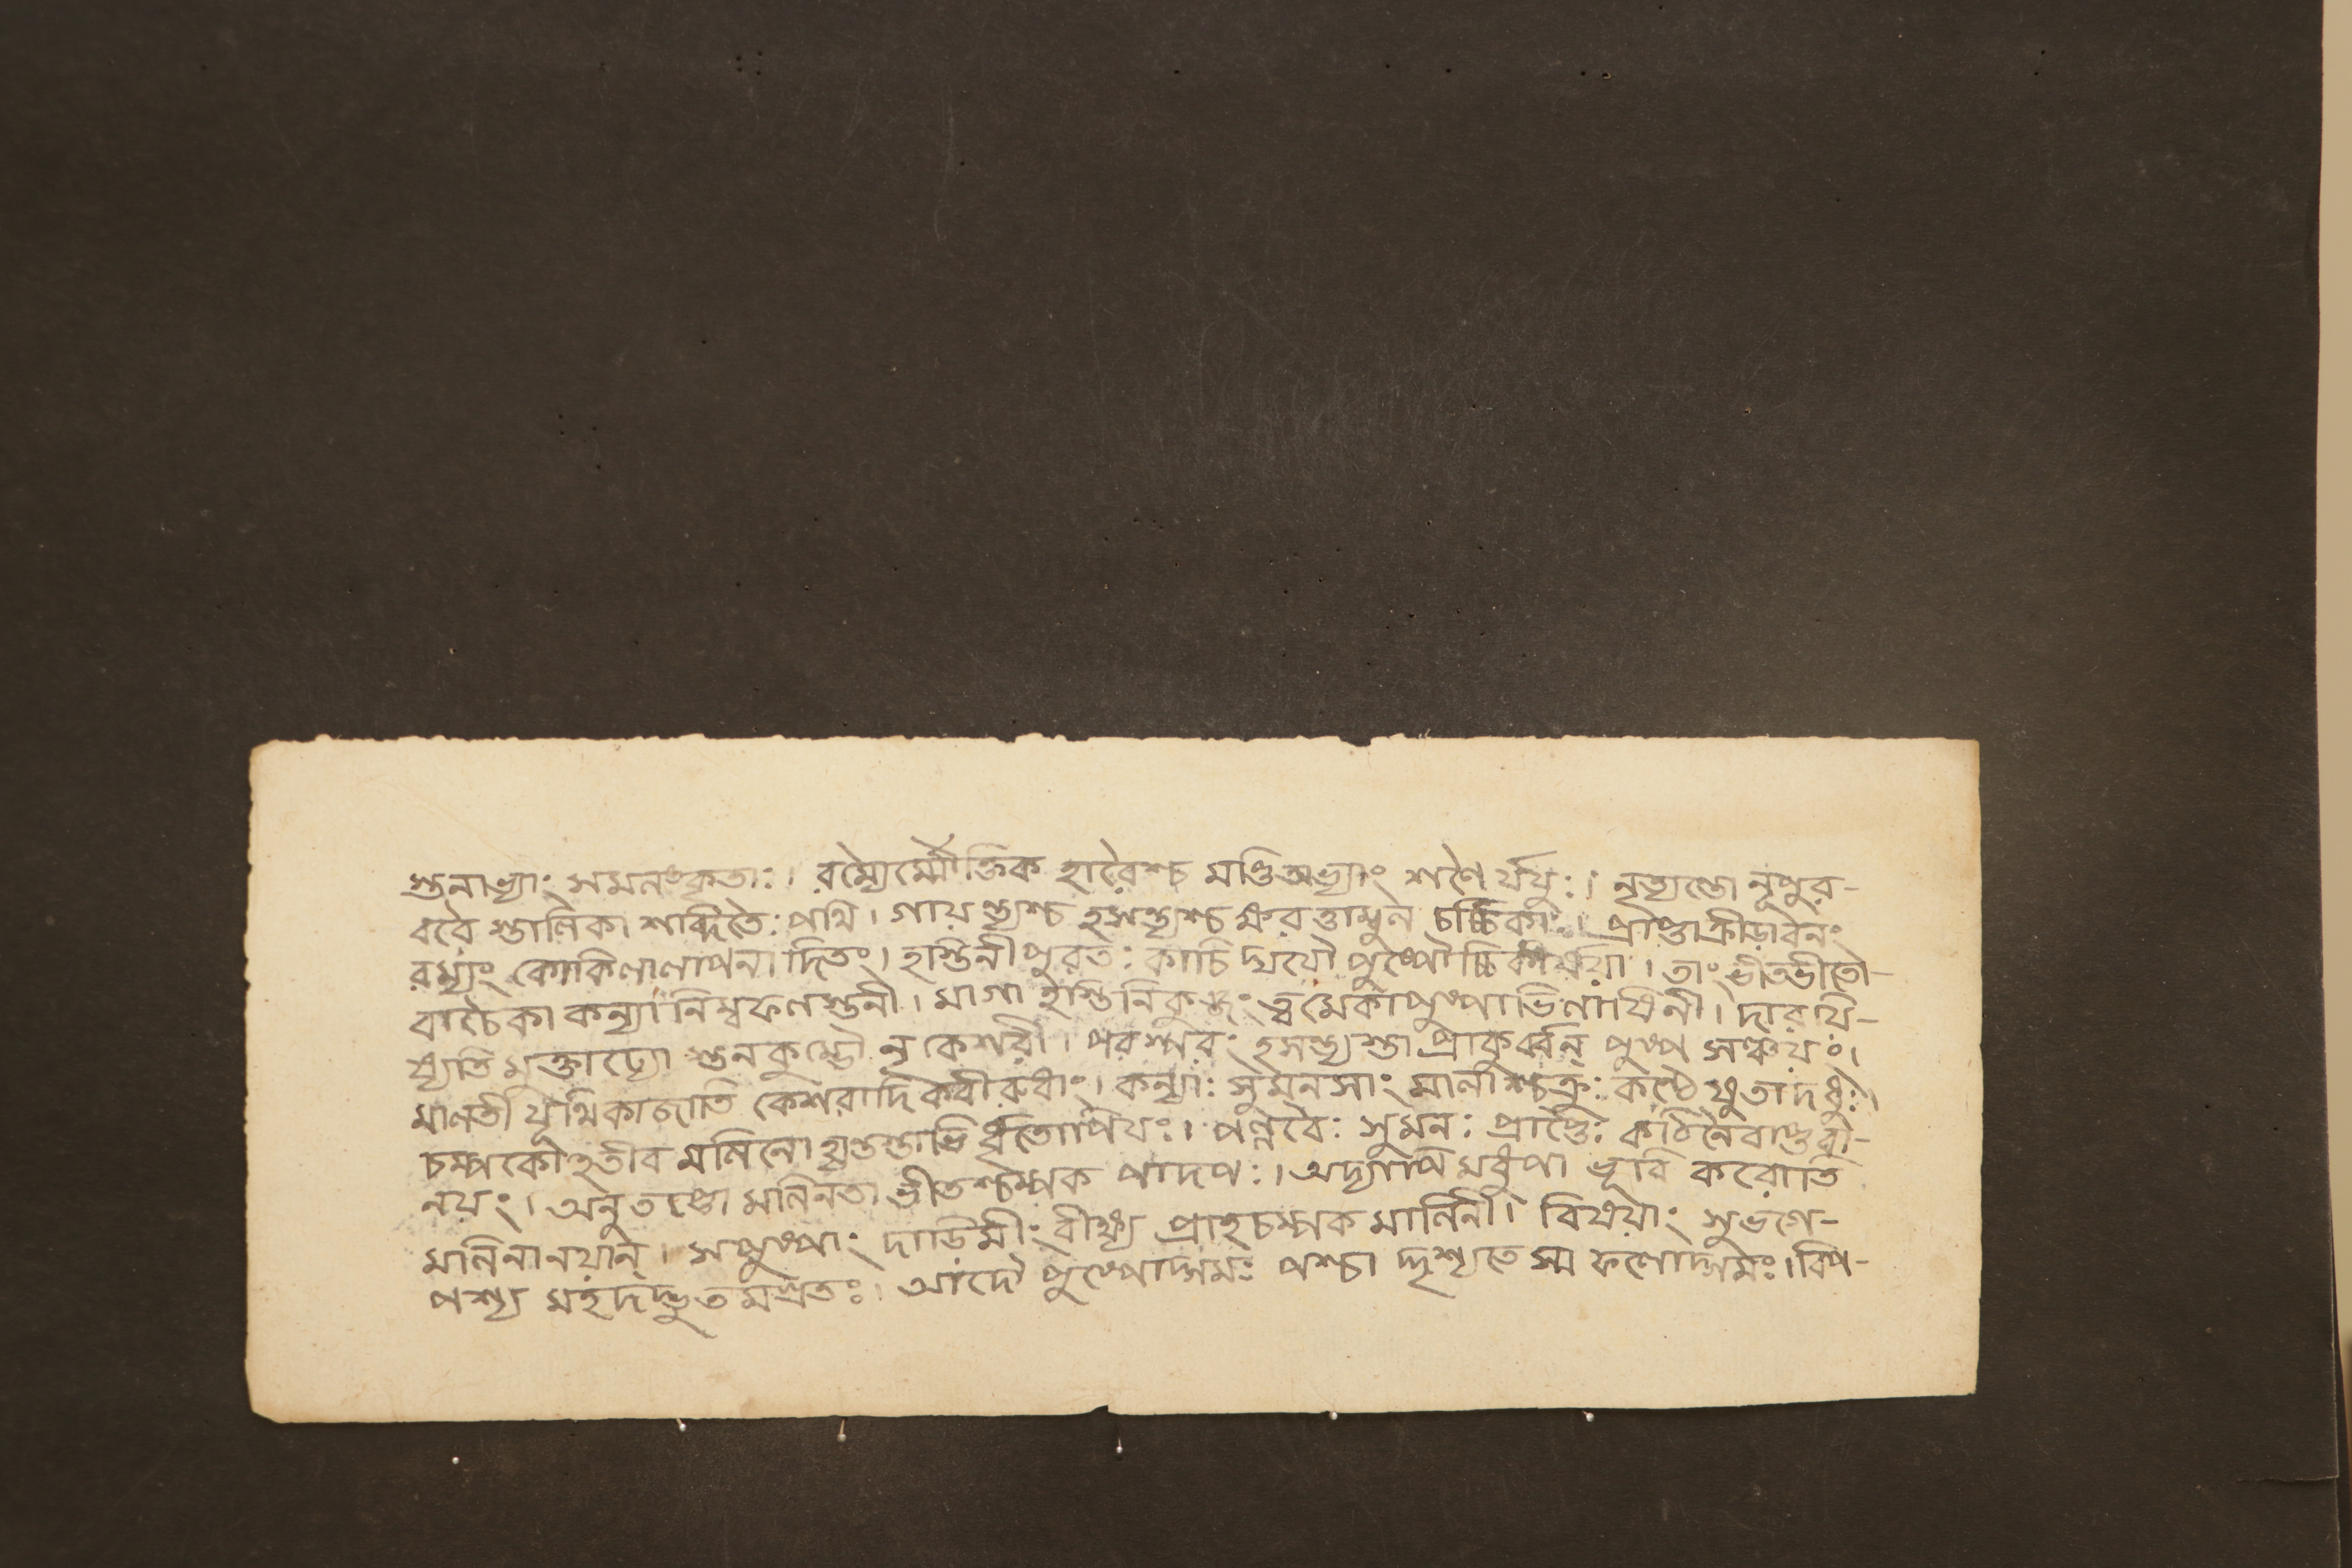 স্তনাভ্যাং সমলঙ্কৃতাঃ। রম্যৈর্মৌক্তিক হারৈশ্চ মণ্ডিতাভ্যাং শনৈ র্যযুঃ। নৃত্যন্তো নূপুর-
রবৈ স্তালিকা শব্দিতৈঃ পথি। গায়ন্ত্যশ্চ হসন্ত্যশ্চ স্ফুরত্তাম্বুল চর্চ্চিকাঃ। প্রাপ্তাক্রীড়াবনং
রম্যং কোকিলালাপনাদিতং। হস্তিনীপুরতঃ কাচি দ্যযৌ পুষ্পৌচ্চিকীর্ষয়া। তাং ভীতভীতো-
বাচৈকা কন্যানিম্বফলস্তনী। মাগা হস্তিনিকুঞ্জং ত্বমেকাপুষ্পাভিলাষিনী। দারয়ি-
ষ্যতি মুক্তাঢ্যো স্তনকুম্ভৌ নৃকেশরী। পরস্পরং হসন্ত্যস্তা প্রাকুর্ব্বন্ পুষ্প সঞ্চয়ং।
মালতী যূথিকাজাতি কেশরাদিকবীরুধাং। কন্যাঃ সুমনসাং মালাশ্চক্রুঃ কণ্ঠে যুতাদধুঃ।
চম্পকৌহতীব মলিনো হ্যন্তস্তাভি র্ধৃতোপিযঃ। পল্লবৈঃ সুমনঃ প্রাপ্তৈঃ কঠিনৈবাস্তবী-
নয়ং। অনুতপ্তো মলিনতা ভীতশ্চম্পক পাদপঃ। অদ্যাপি মধুপা ভূরি করোতি
মলিনানয়ান্। সপুষ্পাং দাড়িমীং বীক্ষ্য প্রাহচম্পক মালিনী। বিষয়াং সুভগে-
পশ্য মহদদ্ভুতমগ্রতঃ। আদৌ পুষ্পোদ্গমঃ পশ্চা দ্দৃশ্যতে স্ম ফলোদ্গমঃ। বিপ-